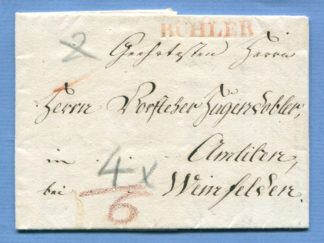 BÜHLER
2 Geehrtesten Herrn
Herrn Vorsteher Zugendobler,
in Amliken
bei Weinfelden
4 x
6